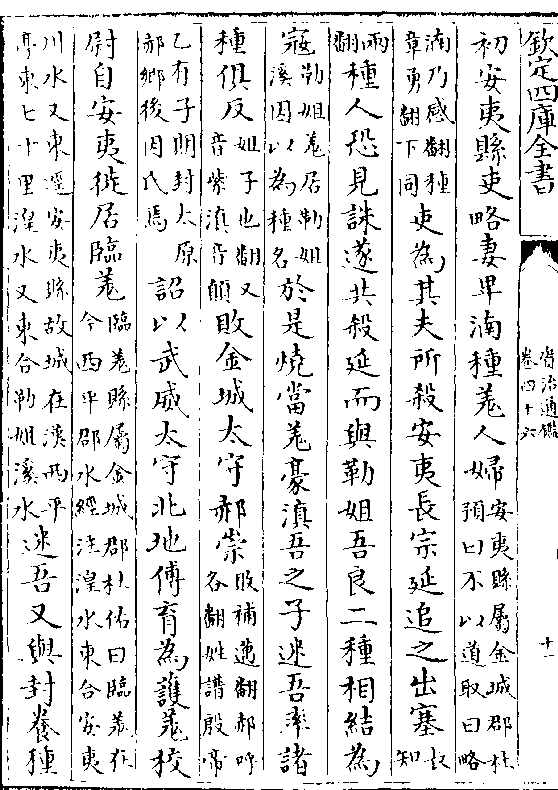 欽定四庫全書
資治通鑑
卷四十六
十一
初安夷縣吏略妻卑湳種羌人婦安夷縣屬金城郡杜預曰不以道取曰略
湳乃感翻種章勇翻下同吏為其夫所殺安夷長宗延追之出塞知
兩翻種人恐見誅遂共殺延而與勒姐吾良二種相結為
寇勒姐羌居勒姐溪因以為種名於是燒當羌豪滇吾之子迷吾率諸
種俱反姐子也翻又音紫滇音顛敗金城太守郝崇敗補邁翻郝呼各翻姓譜殷帝
乙有子期封太原郝鄉後因氏焉詔以武威太守北地傅育為護羌校
尉自安夷徙居臨羌臨羌縣屬金城郡杜佑曰臨羌在今西平郡水經注湟水東合安夷
川水又東逕安夷縣故城在漢西平亭東七十里湟水又東合勒姐溪水迷吾又與封養種